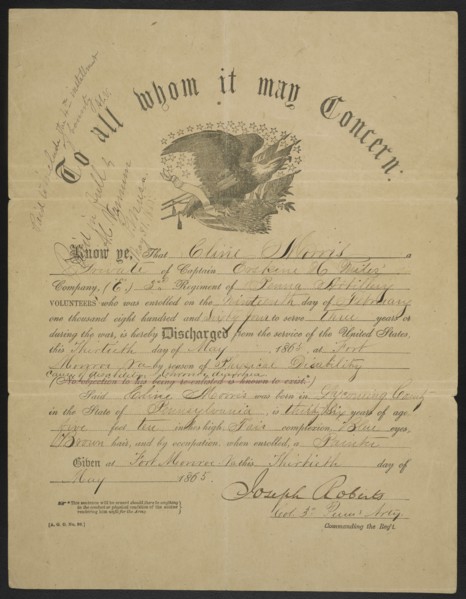 To all whom it may Concern:
Paid in full
Know ye, That Cline Morris a
Private of Captain H
Company, (E,) 3d Regiment of Penna Artillery
VOLUNTEERS who was enrolled on the day of February
one thousand eight hundred and Sixty four to serve Three years or
during the war, is hereby Discharged from the service of the United States,
this Thirtieth day of May 1865, at Fort
Monroe Va by reason of Physical Disability
(No objection to his being re-enlisted is known to exist.)
Said Cline Morris was born in Lycoming County
in the State of Pennsylvania, is thirty six years of age,
five feet ten inches high, Fair complexion, Blue eyes,
Brown hair, and by occupation, when enrolled, a
Given at Fort Monroe Va this Thirtieth day of
May 1865.
Joseph Roberts
Col 3d Penna Arty
Commanding the Reg't.
This sentence will be erased should there be anything
in the conduct or physical condition of the soldier
rendering him unfit for the Army.
[A. G. O. No. 99.]